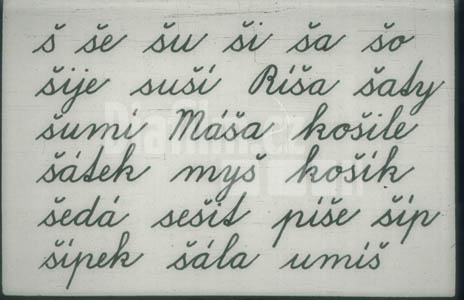 š še šu ši ša šo
šije suší Ríša šaty
šumí Máša košile
šátek myš košík
šedá sešit píše šíp
šípek šála umíš